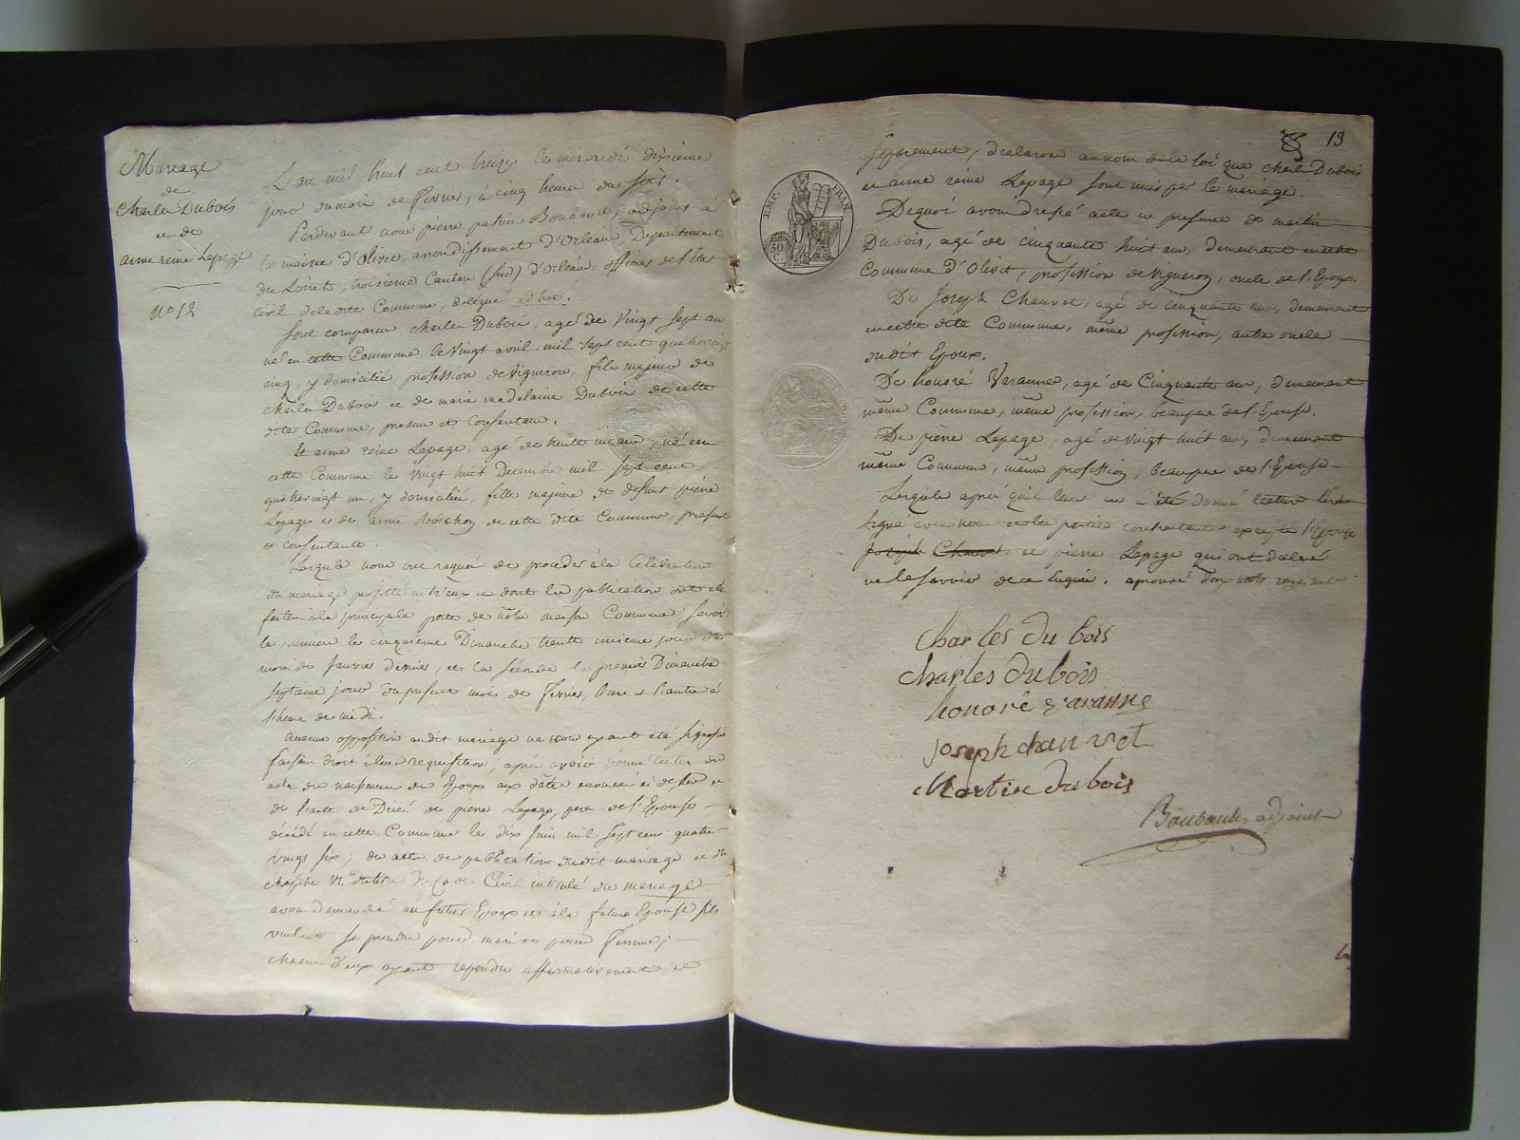 Mariage
de
Charles Dubois
et de
anne reine Lepage
n° 12
L'an mil huit cent treize le mercredi dixième
jour du mois de fevrier, à cinq heures du soir.
Pardevant nous pierre Boubault, adjoint à
la mairie d'Olivet, arrondissement d'Orleans Departement
du Loiret, troisieme Canton (sud) d'Orleans, officier de l'état
civil de la dite Commune, délégué ad hoc.
Sont comparus charles Dubois, agé de Vingt sept ans
né en cette Commune le Vingt avril mil sept cent quatrevingt
cinq, y domicilié profession de Vigneron, fils majeur de
charles Dubois et de marie madelaine Dubois de cette
dite Commune, present et consentant.
Et anne reine Lepage, agé de trente un ans, né en
cette Commune le Vingt huit Decembre mil sept cent
quatrevingt un, y domicilié, fille majeure de defunt pierre
Lepage et de anne de cette dite Commune, presente
et consentante.
Lesquels nous ont requis de proceder à la Célébration
du mariage projetté entr'eux et dont les publications ont été
faites à la principale porte de notre maison Commune savoir
la premiere le cinquieme Dimanche trente unieme jour du
mois de Janvier dernier, et la seconde le premier Dimanche
septieme jour du present mois de fevrier, l'une et l'autre à
l'heure de midi.
Aucune opposition audit mariage ne nous ayant été signifiée
faisant droit à leur requisition, après avoir donné lecture des
actes de naissance des Epoux aux dates enoncées ci dessus et
de l'acte de Décès de pierre Lepage, pere de l'Epouse
décédé en cette Commune le dix Juin mil sept cent quatre
vingt six, des actes de publications dudit mariage et du
chapitre VI du titre du Code Civil intitulé du mariage
avons demandé au futur Epoux et à la future Epouse s'ils
veulent se prendre pour mari et pour femme;
chacun d'eux ayant repondu affirmativement et
séparement, declarons au nom de la loi que charles Dubois
et anne reine Lepage sont unis par le mariage.
Dequoi avons dressé acte en presence de martin
Dubois, agé de cinquante huit ans, demeurant en cette
Commune d'Olivet, profession de Vigneron, oncle de l'Epoux.
De Joseph Chauvet, agé de cinquante ans, demeurant
en cette dite Commune, même profession, autre oncle
dudit Epoux.
De honoré Varanne, agé de Cinquante ans, demeurant
même Commune, même profession, beaupere de l'Epouse.
De pierre Lepage, agé de vingt huit ans, demeurant
même Commune, même profession, de l'Epouse
Lesquels après qu'il leur en a été donné lecture l'ont
signé avec nous et les parties contractantes excepté l'Epouse
joseph Chauvet et pierre Lepage qui ont déclaré
ne le savoir de ce enquis. approuvé deux mots rayés nuls
Charles du bois
charles du bois
honoré varanne
joseph chauvet
Martin du bois
Boubault adjoint
13
EMP. FRAN.
50
C.